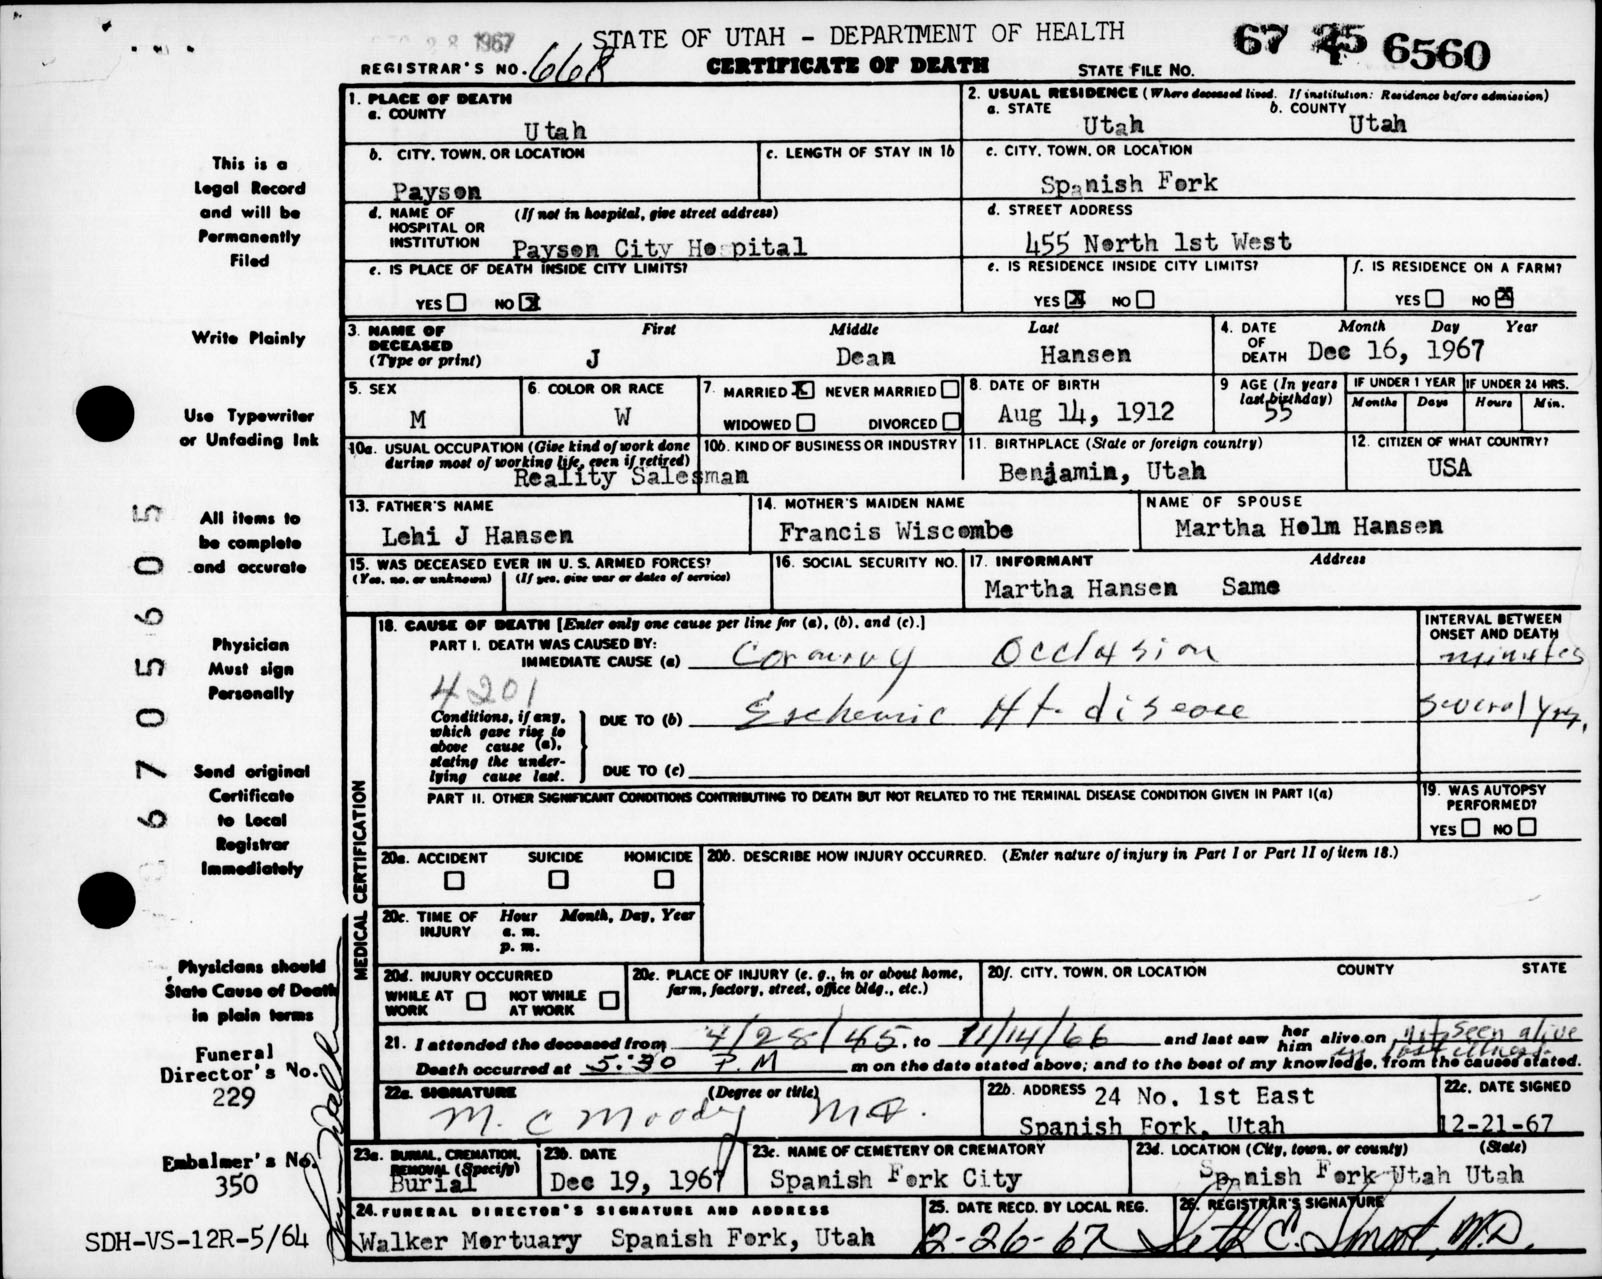 DEC 28 1967
STATE OF UTAH - DEPARTMENT OF HEALTH
67 25 6560
REGISTRAR'S NO. 668 CERTIFICATE OF DEATH STATE FILE NO.
1. PLACE OF DEATH
a. COUNTY
Utah
2. USUAL RESIDENCE (Where deceased lived. If institution: Residence before admission)
a. STATE b. COUNTY
Utah Utah
b. CITY, TOWN, OR LOCATION
Payson
c. LENGTH OF STAY IN 1b
c. CITY, TOWN, OR LOCATION
Spanish Fork
d. NAME OF HOSPITAL OR INSTITUTION (If not in hospital, give street address)
Payson City Hospital
d. STREET ADDRESS
455 North 1st West
e. IS PLACE OF DEATH INSIDE CITY LIMITS?
YES NO X
e. IS RESIDENCE INSIDE CITY LIMITS?
YES X NO
f. IS RESIDENCE ON A FARM?
YES NO X
3. NAME OF DECEASED (Type or print) First Middle Last
J Dean Hansen
4. DATE OF DEATH Month Day Year
Dec 16, 1967
5. SEX
M
6. COLOR OR RACE
W
7. MARRIED X NEVER MARRIED
WIDOWED DIVORCED
8. DATE OF BIRTH
Aug 14, 1912
9 AGE (In years last birthday)
55
IF UNDER 1 YEAR IF UNDER 24 HRS.
Months Days Hours Min.
10a. USUAL OCCUPATION (Give kind of work done during most of working life, even if retired)
Reality Salesman
10b. KIND OF BUSINESS OR INDUSTRY
11. BIRTHPLACE (State or foreign country)
Benjamin, Utah
12. CITIZEN OF WHAT COUNTRY?
USA
13. FATHER'S NAME
Lehi J Hansen
14. MOTHER'S MAIDEN NAME
Francis Wiscombe
NAME OF SPOUSE
Martha Holm Hansen
15. WAS DECEASED EVER IN U. S. ARMED FORCES?
(Yes, no, or unknown) (If yes, give war or dates of service)
16. SOCIAL SECURITY NO.
17. INFORMANT Address
Martha Hansen Same
MEDICAL CERTIFICATION
18. CAUSE OF DEATH [Enter only one cause per line for (a), (b), and (c).]
INTERVAL BETWEEN ONSET AND DEATH
PART I. DEATH WAS CAUSED BY:
IMMEDIATE CAUSE (a) Coronary Occlusion minutes
4201
Conditions, if any, which gave rise to above cause (a), stating the underlying cause last.
DUE TO (b) Eschemic Ht. disease several yrs.
DUE TO (c)
PART II. OTHER SIGNIFICANT CONDITIONS CONTRIBUTING TO DEATH BUT NOT RELATED TO THE TERMINAL DISEASE CONDITION GIVEN IN PART I(a)
19. WAS AUTOPSY PERFORMED?
YES NO
20a. ACCIDENT SUICIDE HOMICIDE
20b. DESCRIBE HOW INJURY OCCURRED. (Enter nature of injury in Part I or Part II of item 18.)
20c. TIME OF INJURY Hour Month, Day, Year
a. m.
p. m.
20d. INJURY OCCURRED
WHILE AT WORK NOT WHILE AT WORK
20e. PLACE OF INJURY (e. g., in or about home, farm, factory, street, office bldg., etc.)
20f. CITY, TOWN, OR LOCATION COUNTY STATE
21. I attended the deceased from 4/28/45, to 11/14/66 and last saw her him alive on not seen alive
in last illness.
Death occurred at 5:30 P.M m on the date stated above; and to the best of my knowledge, from the causes stated.
22a. SIGNATURE (Degree or title)
M. C Moody MD.
22b. ADDRESS 24 No. 1st East
Spanish Fork, Utah
22c. DATE SIGNED
12-21-67
23a. BURIAL, CREMATION, REMOVAL (Specify)
Burial
23b. DATE
Dec 19, 1967
23c. NAME OF CEMETERY OR CREMATORY
Spanish Fork City
23d. LOCATION (City, town, or county) (State)
Spanish Fork Utah Utah
24. FUNERAL DIRECTOR'S SIGNATURE AND ADDRESS
Walker Mortuary Spanish Fork, Utah
25. DATE RECD. BY LOCAL REG.
12-26-67
26. REGISTRAR'S SIGNATURE
Seth C. Smoot, M.D.
This is a
Legal Record
and will be
Permanently
Filed
Write Plainly
Use Typewriter
or Unfading Ink
All items to
be complete
and accurate
Physician
Must sign
Personally
Send original
Certificate
to Local
Registrar
Immediately
Physicians should
State Cause of Death
in plain terms
Funeral
Director's No.
229
Embalmer's No.
350
SDH-VS-12R-5/64
67 05 05605